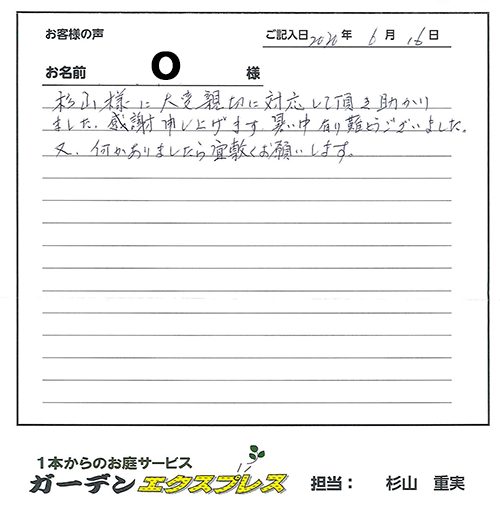 お客様の声 ご記入日 2020 年 6 月 16 日
お名前 O 様
杉山様に大変親切に対応して頂き助かり
ました。感謝申し上げます。暑い中有り難とうございました。
又、何かありましたら宜敷くお願いします。
1本からのお庭サービス
ガーデンエクスプレス 担当： 杉山 重実